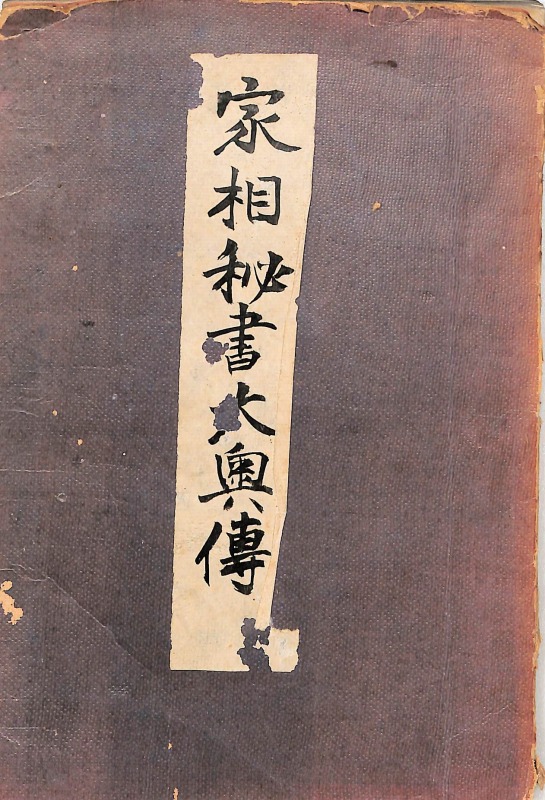 家相秘書大奥傳